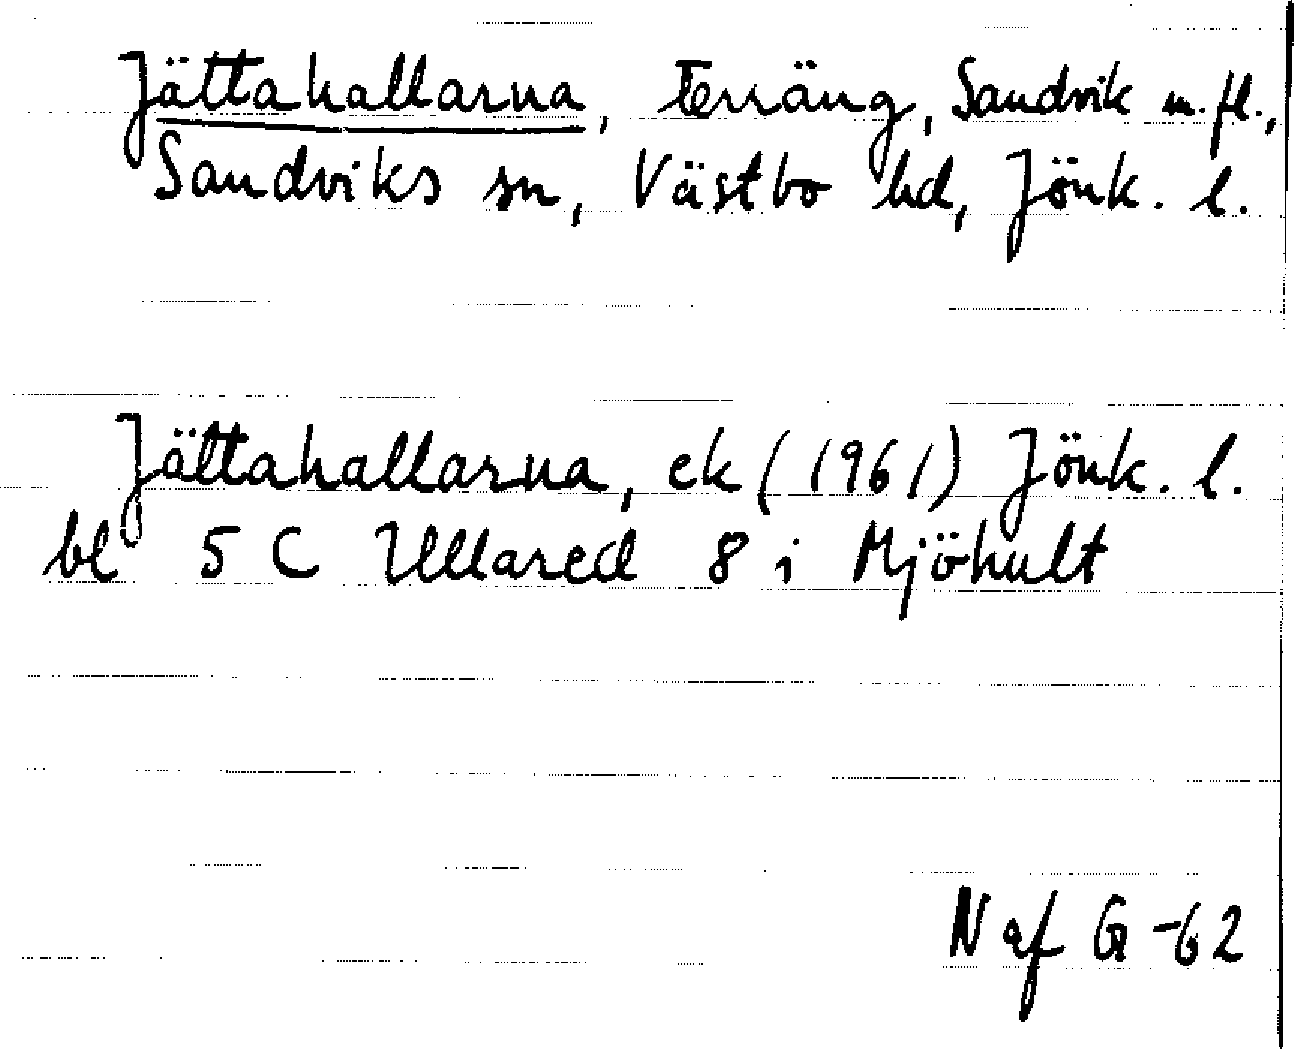 Jättahallarna, Terräng, Sandvik m.fl.,
Sandviks sn, Västbo hd, Jönk. l.
Jättahallarna, ek (1961) Jönk. l.
bl 5 C Ullared 8 i Mjöhult
N af G -62